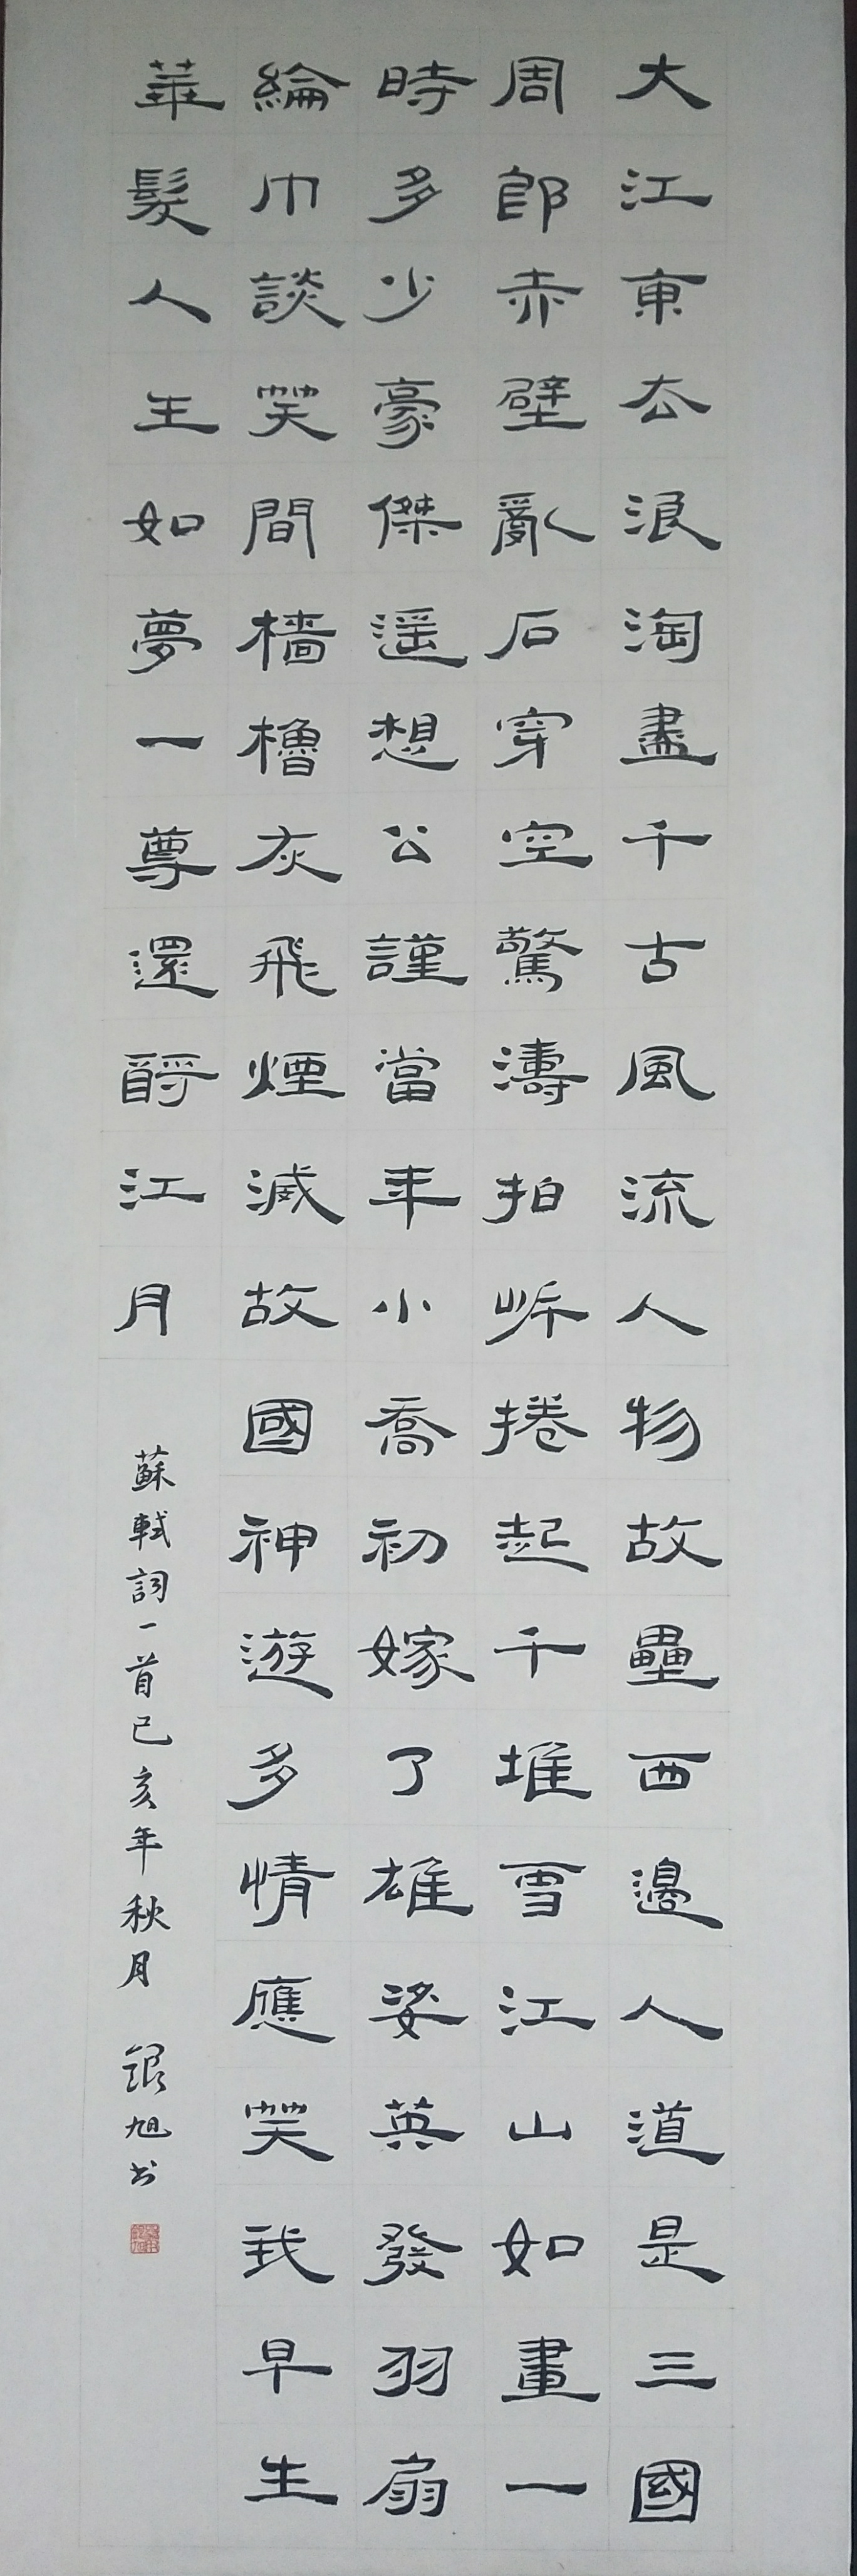 大江東去浪淘盡千古風流人物故壘西邊人道是三國
周郎赤壁亂石穿空驚濤拍岍捲起千堆雪江山如畫一
時多少豪傑遥想公謹當年小喬初嫁了雄姿英發羽扇
綸巾談笑間檣櫓灰飛煙滅故國神遊多情應笑我早生
華髮人生如夢一尊還酹江月
蘇軾詞一首己亥年秋月 銀旭书